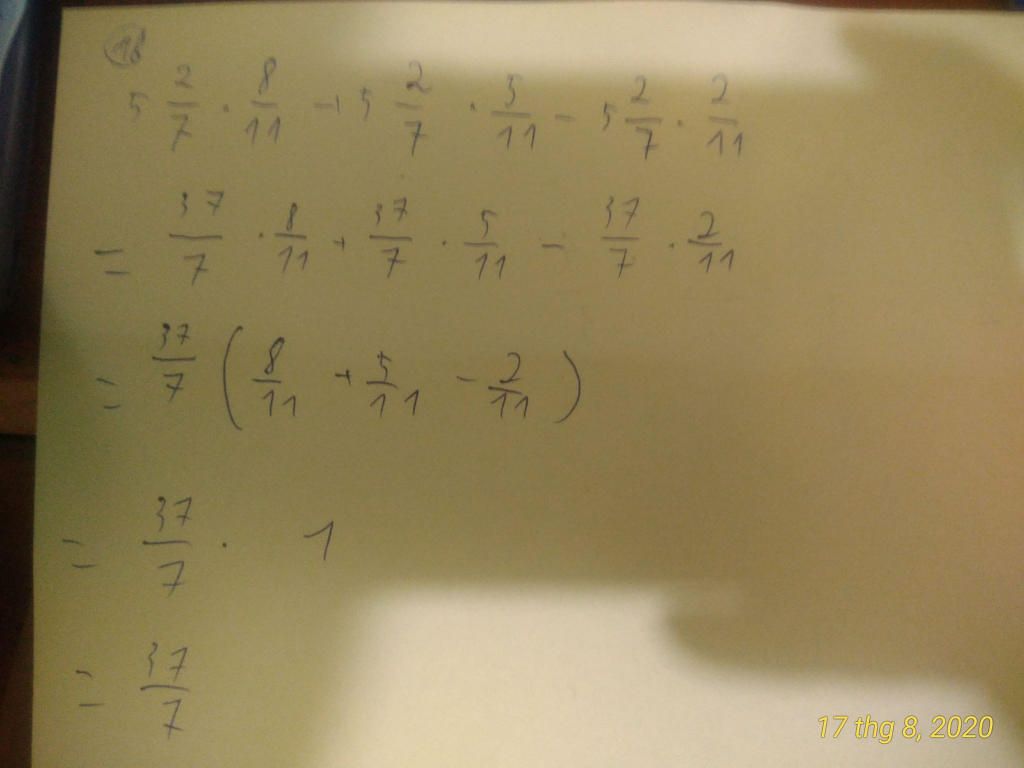 1b
5 2/7 . 8/11 + 5 2/7 . 5/11 - 5 2/7 . 2/11
= 37/7 . 8/11 + 37/7 . 5/11 - 37/7 . 2/11
= 37/7 ( 8/11 + 5/11 - 2/11 )
= 37/7 . 1
= 37/7
17 thg 8, 2020